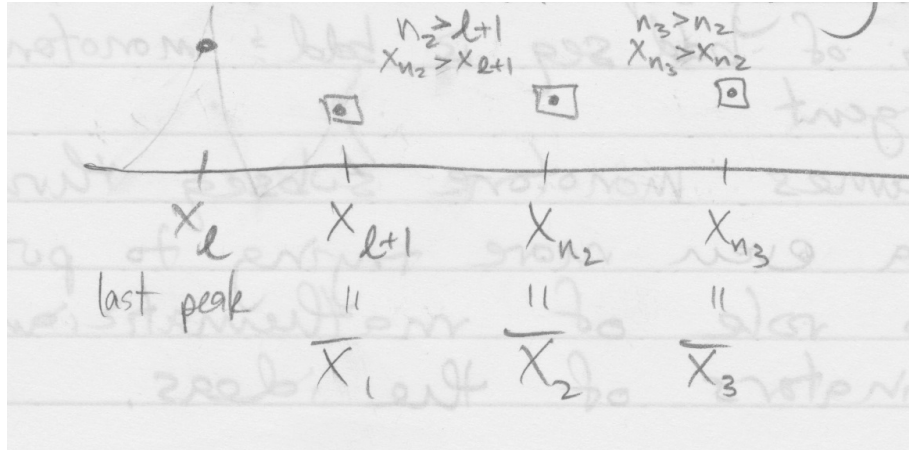 n₂ > l+1 n₃ > n₂
xₙ₂ > xₗ₊₁ xₙ₃ > xₙ₂
xₗ xₗ₊₁ xₙ₂ xₙ₃
last peak = = =
X̅₁ X̅₂ X̅₃